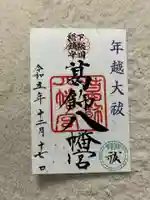 年越大祓
下総国
総鎮守
葛飾八幡宮
令和五年十二月十七日
祓